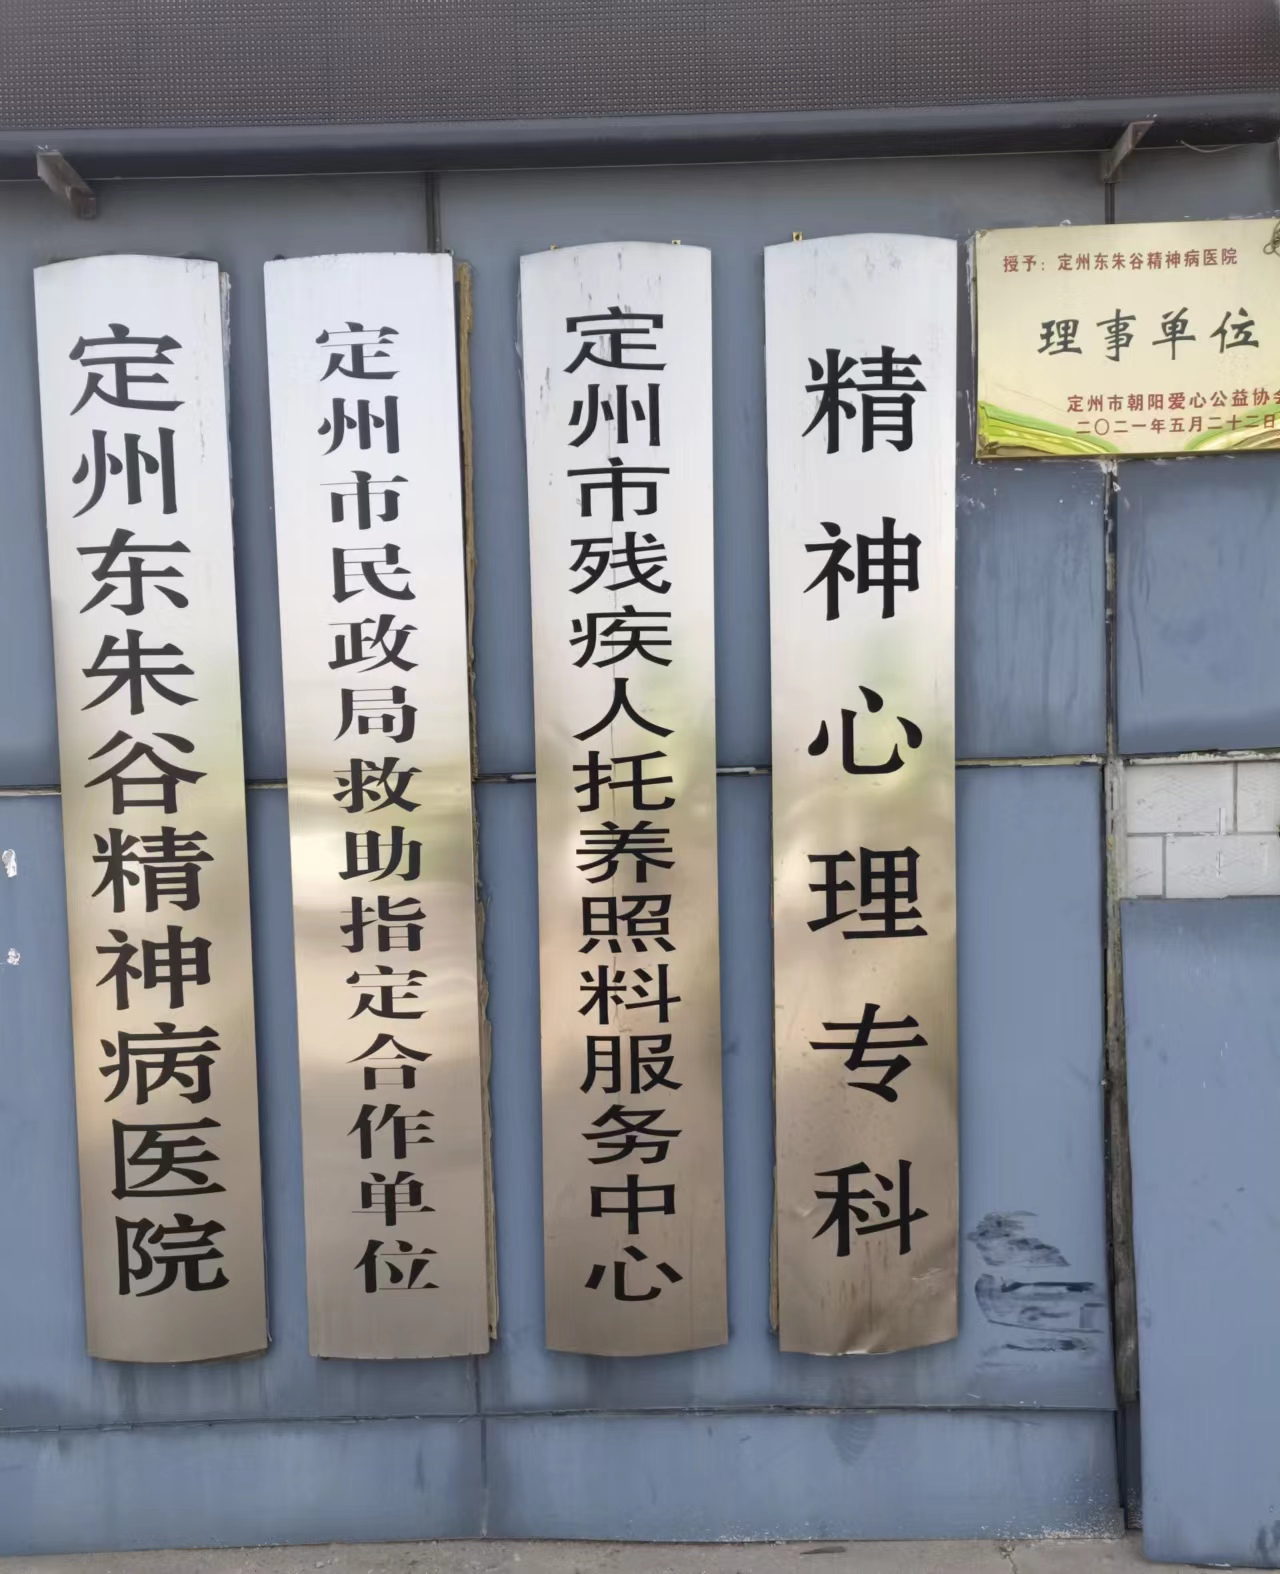 定州东朱谷精神病医院
定州市民政局救助指定合作单位
定州市残疾人托养照料服务中心
精神心理专科
授予：定州东朱谷精神病医院
理事单位
定州市朝阳爱心公益协会
二〇二一年五月二十二日